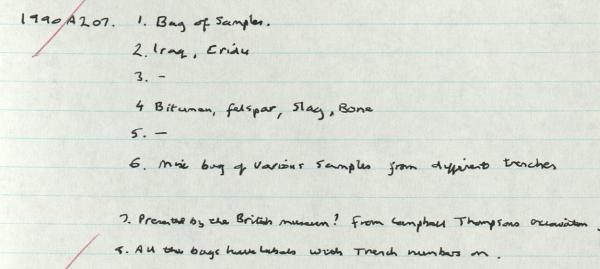 1990A207. 1. Bag of Samples.
2. Iraq, Eridu
3. -
4 Bitumen, felspar, Slag, Bone
5. -
6. Mix bag of various samples from different trenches
7. Presented by the British museum? from Campbell Thompsons excavation.
8. All the bags have labels with Trench numbers on.